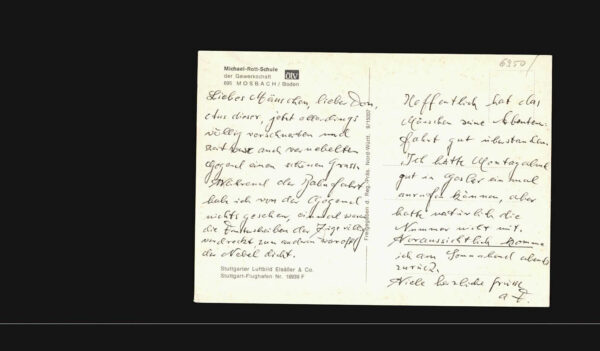 Michael-Rott-Schule
der Gewerkschaft
695 MOSBACH/Baden
ötv
Liebes Mänschen, lieber Don,
Aus dieser, jetzt allerdings
völlig verschneiten und
seit auch vernebelten
Gegend einen schönen Gruss.
Während der Bahnfahrt
hab ich von der Gegend
nichts gesehen, einmal waren
die Fensterscheiben der Züge völlig
verdreckt zum andern war oft
der Nebel dicht.
Stuttgarter Luftbild Elsäßer & Co.
Stuttgart-Flughafen Nr. F
Freigegeben d. Reg.-Präs. Nord-Württ.
6950/
Hoffentlich hat das
Mänschen seine
fahrt gut überstanden.
Ich hätte Montagabend
gut in einmal
anrufen können, aber
hatte natürlich die
Nummer nicht mit.
Voraussichtlich komme
ich am Sonnabend abends
zurück.
Viele herzliche Grüße